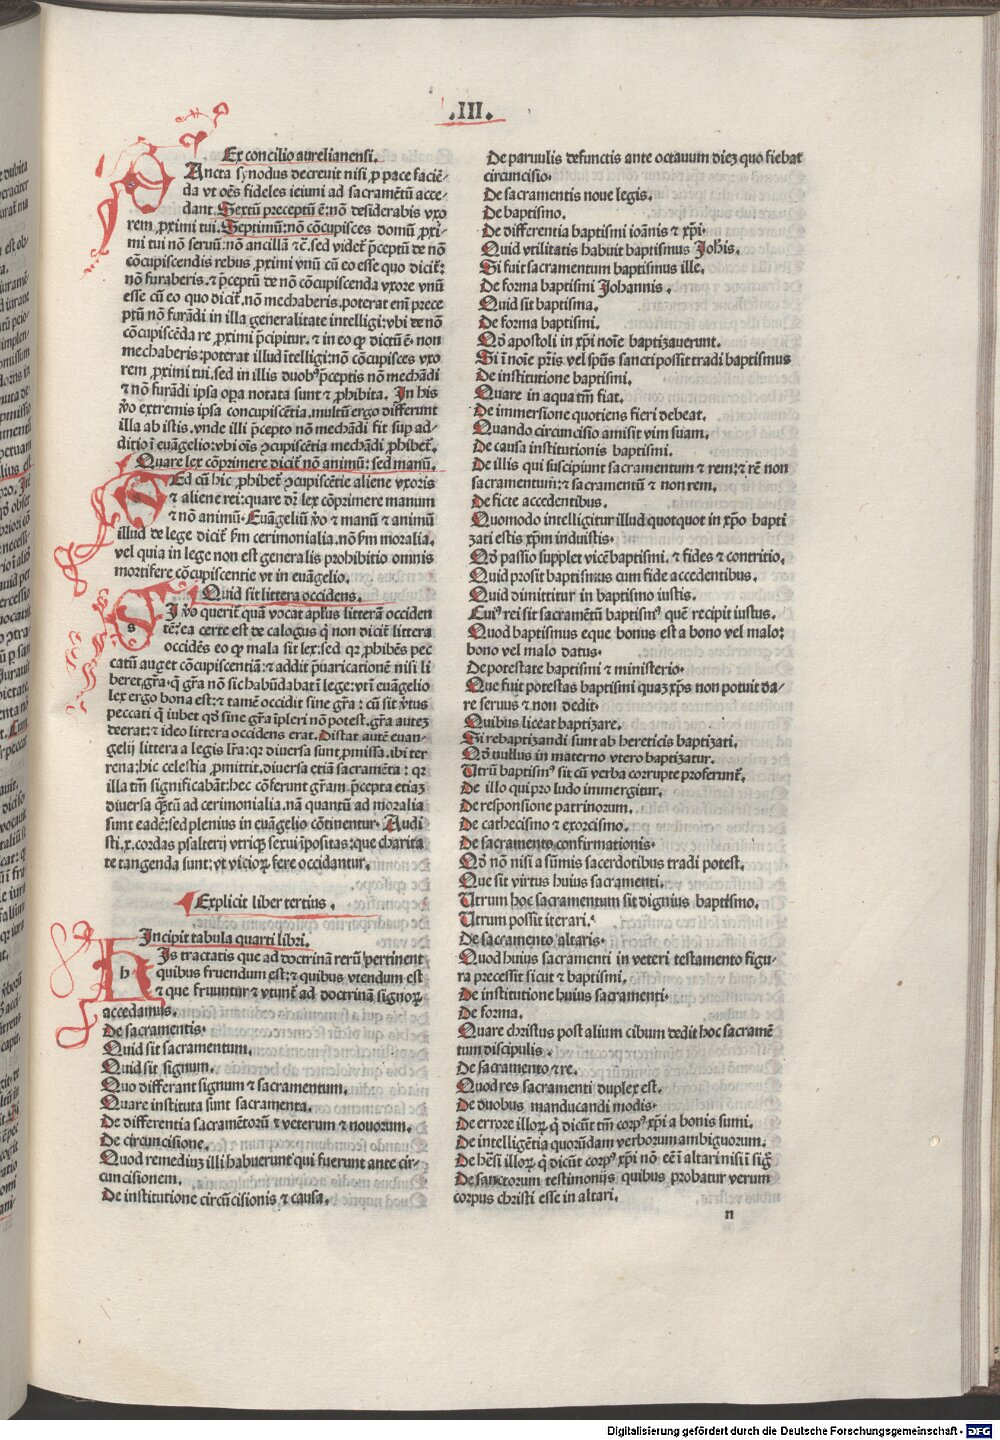 .III.
Ex concilio aurelianensi.
SAncta synodus decreuit nisi ꝓ pace faciē⸗
da vt oēs fideles ieiuni ad sacramētū acce⸗
dant. Sextū preceptū ē: nō desiderabis vxo
rem ꝓximi tui. Septimū: nō cōcupisces domū ꝓxi⸗
mi tui nō seruū: nō ancillā ⁊c̄. sed videt̉ p̄ceptū de nō
cōcupiscendis rebus ꝓximi vnū cū eo esse quo dicit̉:
nō furaberis. ⁊ p̄ceptū de nō cōcupiscenda vxore vnū
esse cū eo quo dicit̉. nō mechaberis. poterat eni̅ prece
ptū nō furādi in illa generalitate intelligi: vbi de nō
cōcupiscēda re ꝓximi p̄cipitur. ⁊ in eo ꝙ dictū ē. non
mechaberis: poterat illud ītelligi: nō cōcupisces vxo
rem ꝓximi tui. sed in illis duobꝰ p̄ceptis nō mechādi
⁊ nō furādi ipsa oꝑa notata sunt ⁊ ꝓhibita. In his
v̊o extremis ipsa concupiscētia. multū ergo differunt
illa ab istis. vnde illi p̄cepto nō mechādi fit sup̱ ad⸗
ditio ī euāgelio: vbi oīs ꝯcupiscētia mechādi ꝓhibet̉.
Quare lex cōprimere dicit̉ nō animū: sed manū.
SEd cū hic ꝓhibet̉ ꝯcupiscētie aliene vxoris
⁊ aliene rei: quare dr̄ lex cōprimere manum
⁊ nō animū. Euāgeliū v̊o ⁊ manū ⁊ animū
illud de lege dicit̉ ẜm cerimonialia. nō ẜm moralia.
vel quia in lege non est generalis prohibitio omnis
mortifere cōcupiscentie vt in euāgelio.
Quid sit littera occidens.
SI v̊o querit̉ quā vocat apl̄us litterā occiden
tē: ea certe est de calogus q̄ non dicit̉ littera
occidēs eo ꝙ mala sit lex: sed qꝛ ꝓhibēs pec
catū auget cōcupiscentiā: ⁊ addit p̄uaricationē nisi li
beret gr̄a. q̄ gr̄a nō sic habūdabat ī lege: vt ī euāgelio
lex ergo bona est: ⁊ tamē occidit sine gr̄a: cū sit v̓tus
peccati q̄ iubet qd̓ sine gr̄a īpleri nō potest. gr̄a auteꝫ
deerat: ⁊ ideo littera occidens erat. Distat autē euan⸗
gelij littera a legis lr̄a: qꝛ diuersa sunt ꝓmissa. ibi ter
rena: hic celestia ꝓmittit. diuersa etiā sacramēta: qꝛ
illa tm̄ significabāt: hec cōferunt gr̄am. p̄cepta etiaꝫ
diuersa q̄ꝫtū ad cerimonialia. nā quantū ad moralia
sunt eadē: sed plenius in euāgelio cōtinentur. Audi
sti .x. cordas psalterij vtriqꝫ sexui īpositas: que charita
te tangenda sunt: vt vicioꝝ fere occidantur.
Explicit liber tertius.
Incipit tabula quarti libri.
HIs tractatis que ad doctrinā rerū pertinent
quibus fruendum est: ⁊ quibus vtendum est
⁊ que fruuntur ⁊ vtunt̉ ad doctrinā signoꝝ
accedamus.
De sacramentis.
Quid sit sacramentum.
Quid sit signum.
Quo differant signum ⁊ sacramentum.
Quare instituta sunt sacramenta.
De differentia sacramētorū ⁊ veterum ⁊ nouorum.
De circuncisione.
Quod remediuꝫ illi habuerunt qui fuerunt ante cir⸗
cuncisionem.
De institutione circūcisionis ⁊ causa.
De paruulis defunctis ante octauum dieꝫ quo fiebat
circuncisio.
De sacramentis noue legis.
De baptismo.
De differentia baptismi ioānis ⁊ xp̄i.
Quid vtilitatis habuit baptismus Joh̄is.
Si fuit sacramentum baptismus ille.
De forma baptismi Johannis.
Quid sit baptisma.
De forma baptismi.
Qd̓ apostoli in xp̄i noīe baptizauerunt.
Si ī noīe pr̄is vel sp̄us sancti possit tradi baptismus
De institutione baptismi.
Quare in aqua tm̄ fiat.
De immersione quotiens fieri debeat.
Quando circuncisio amisit vim suam.
De causa institutionis baptismi.
De illis qui suscipiunt sacramentum ⁊ rem: ⁊ rē non
sacramentum: ⁊ sacramentū ⁊ non rem.
De ficte accedentibus.
Quomodo intelligitur illud quotquot in xp̄o bapti
zati estis xp̄m induistis.
Qd̓ passio supplet vicē baptismi. ⁊ fides ⁊ contritio.
Quid prosit baptismus cum fide accedentibus.
Quid dimittitur in baptismo iustis.
Cuiꝰ rei sit sacramētū baptismꝰ quē recipit iustus.
Quod baptismus eque bonus est a bono vel malo:
bono vel malo datus.
De potestate baptismi ⁊ ministerio.
Que fuit potestas baptismi quaꝫ xp̄s non potuit da⸗
re seruis ⁊ non dedit.
Quibus liceat baptizare.
Si rebaptizandi sunt ab hereticis baptizati.
Qd̓ nullus in materno vtero baptizatur.
Utrū baptismꝰ sit cū verba corrupte proferunt̉.
De illo qui pro ludo immergitur.
De responsione patrinorum.
De cathecismo ⁊ exorcismo.
De sacramento confirmationis.
Qd̓ nō nisi a sūmis sacerdotibus tradi potest.
Que sit virtus huius sacramenti.
Utrum hoc sacramentum sit dignius baptismo.
Utrum possit iterari.
De sacramento altaris.
Quod huius sacramenti in veteri testamento figu⸗
ra precessit sicut ⁊ baptismi.
De institutione huius sacramenti.
De forma.
Quare christus post alium cibum dedit hoc sacramē
tum discipulis.
De sacramento ⁊ re.
Quod res sacramenti duplex est.
De duobus manducandi modis.
De errore illoꝝ q̇ dicūt tm̄ corpꝰ xp̄i a bonis sumi.
De intelligētia quorūdam verborum ambiguorum.
De h̄esi illoꝝ q̇ dicūt corpꝰ xp̄i nō eē ī altari nisi ī sig̊
De sanctorum testimonijs quibus probatur verum
corpus christi esse in altari.
n
Digitalisierung gefördert durch die Deutsche Forschungsgemeinschaft - DFG